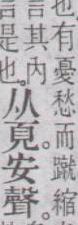 也有憂愁而蹴縮
其內
是也从頁安聲